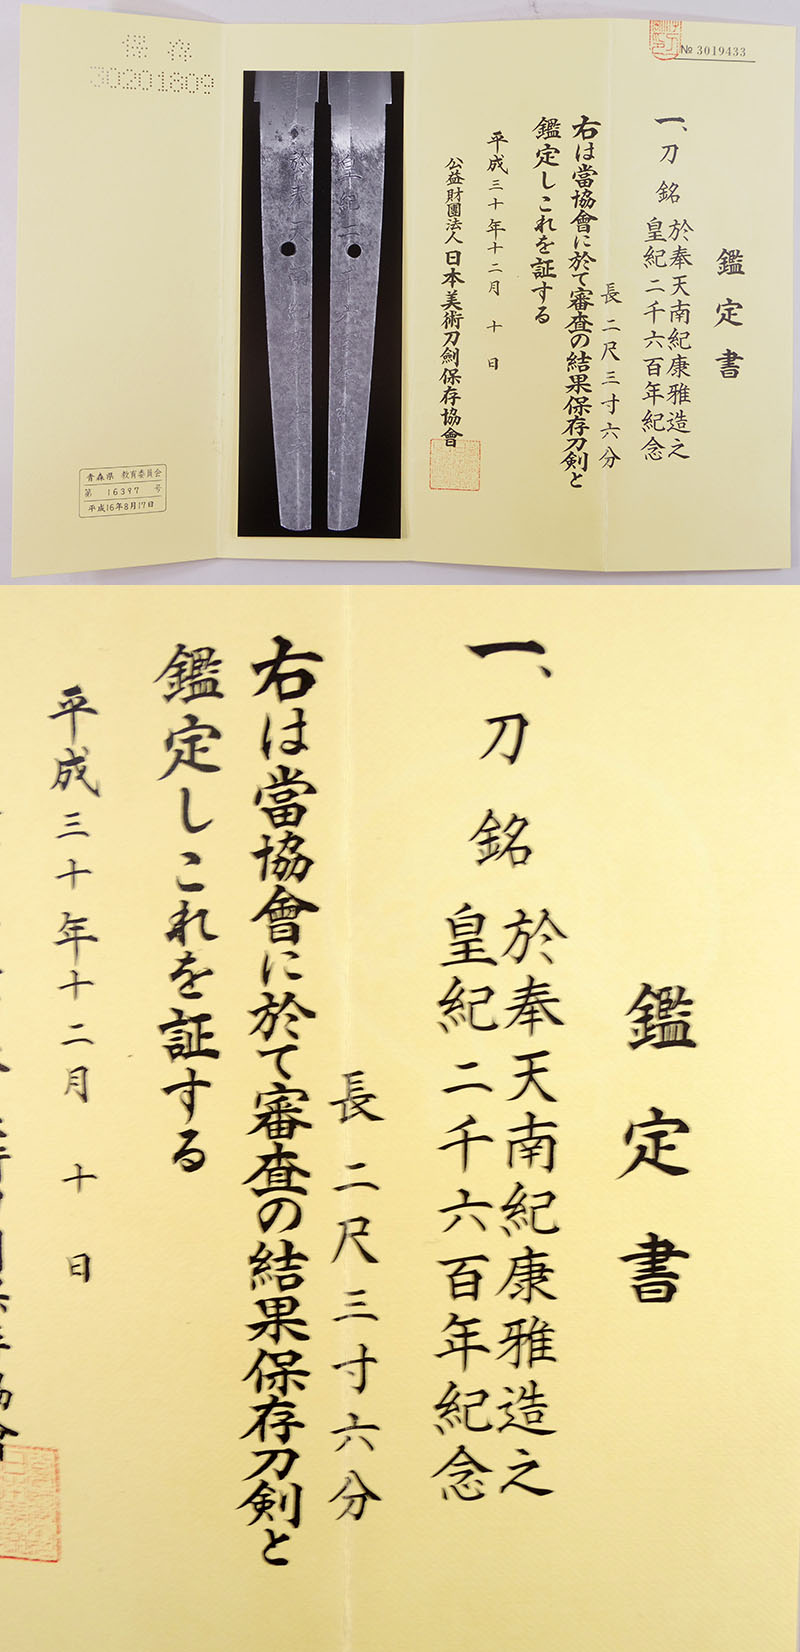 № 3019433
鑑定書
一、刀 銘 於奉天南紀康雅造之
皇紀二千六百年紀念
長 二尺三寸六分
右は當協會に於て審査の結果保存刀剣と
鑑定しこれを証する
平成三十年十二月 十 日
公益財團法人 日本美術刀劍保存協會
保存
30201809
皇紀二千六
於奉天南紀康
青森県 教育委員会
第 16397 号
平成16年8月17日
鑑定書
一、刀 銘 於奉天南紀康雅造之
皇紀二千六百年紀念
長 二尺三寸六分
右は當協會に於て審査の結果保存刀剣と
鑑定しこれを証する
平成三十年十二月 十 日